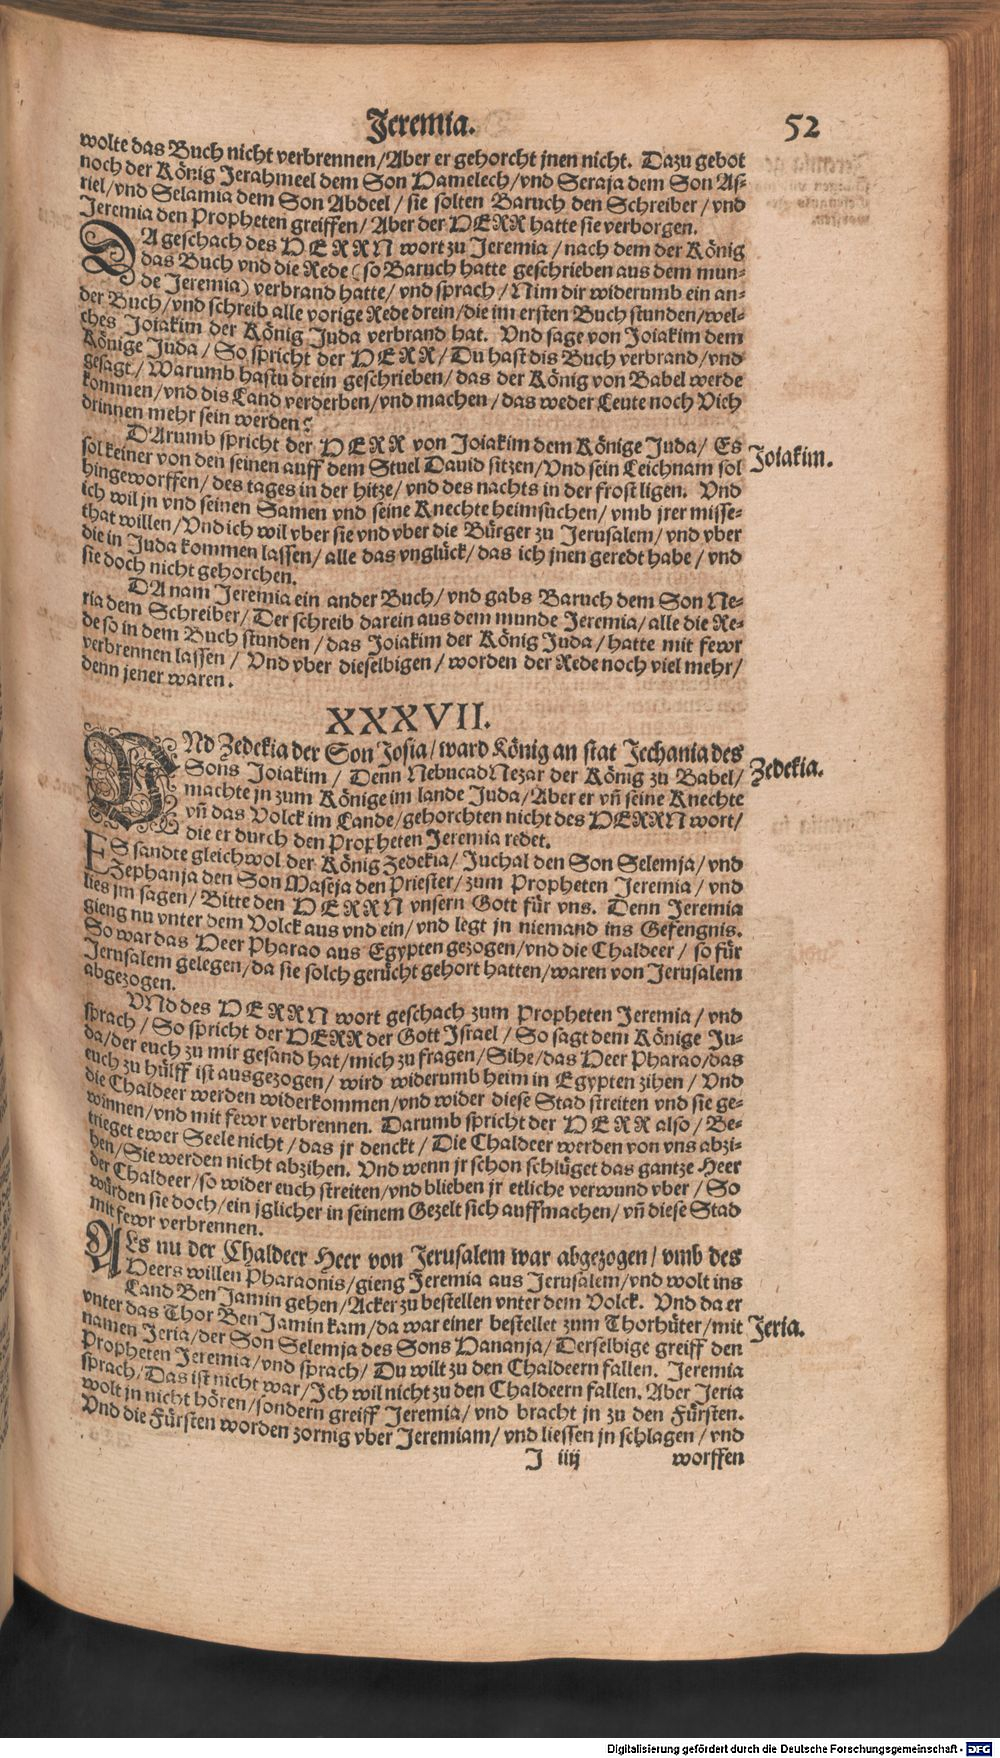 Jeremia. 52
wolte das Buch nicht verbrennen/Aber er gehorcht jnen nicht. Dazu gebot
noch der König Jerahmeel dem Son Hamelech/vnd Seraja dem Son As-
riel/vnd Selamia dem Son Abdeel/ sie solten Baruch den Schreiber/ vnd
Jeremia den Propheten greiffen/ Aber der HERR hatte sie verborgen.
DA geschach des HERRN wort zu Jeremia/ nach dem der König
das Buch vnd die Rede (so Baruch hatte geschrieben aus dem mun-
de Jeremia) verbrand hatte/ vnd sprach/ Nim dir widerumb ein an-
der Buch/vnd schreib alle vorige Rede drein/die im ersten Buch stunden/wel-
ches Joiakim der König Juda verbrand hat. Vnd sage von Joiakim dem
Könige Juda/ So spricht der HERR/ Du hast dis Buch verbrand/vnd
gesagt/ Warumb hastu drein geschrieben/das der König von Babel werde
kommen/vnd dis Land verderben/vnd machen/das weder Leute noch Vich
drinnen mehr sein werden?
DArumb spricht der HERR von Joiakim dem Könige Juda/ Es
Joiakim.
sol keiner von den seinen auff dem Stuel Dauid sitzen/Vnd sein Leichnam sol
hingeworffen/des tages in der hitze/vnd des nachts in der frost ligen. Vnd
ich wil jn vnd seinen Samen vnd seine Knechte heimsuchen/ vmb jrer misse-
that willen/Vnd ich wil vber sie vnd vber die Bürger zu Jerusalem/vnd vber
die in Juda kommen lassen/ alle das vnglück/das ich jnen geredt habe/ vnd
sie doch nicht gehorchen.
DA nam Jeremia ein ander Buch/ vnd gabs Baruch dem Son Ne-
ria dem Schreiber/ Der schreib darein aus dem munde Jeremia/alle die Re-
de so in dem Buch stunden/das Joiakim der König Juda/hatte mit fewr
verbrennen lassen/ Vnd vber dieselbigen/worden der Rede noch viel mehr/
denn jener waren.
XXXVII.
VNd Zedekia der Son Josia/ward König an stat Jechania des
Zedekia.
Sons Joiakim/ Denn NebucadNezar der König zu Babel/
machte jn zum Könige im lande Juda/Aber er vñ seine Knechte
vñ das Volck im Lande/gehorchten nicht des HERRN wort/
die er durch den Propheten Jeremia redet.
ES sandte gleichwol der König Zedekia/ Juchal den Son Selemja/ vnd
Zephanja den Son Maseja den Priester/zum Propheten Jeremia/ vnd
lies jm sagen/ Bitte den HERRN vnsern Gott für vns. Denn Jeremia
gieng nu vnter dem Volck aus vnd ein/vnd legt jn niemand ins Gefengnis.
So war das Heer Pharao aus Egypten gezogen/vnd die Chaldeer/ so für
Jerusalem gelegen/da sie solch gerücht gehort hatten/waren von Jerusalem
abgezogen.
VNd des HERRN wort geschach zum Propheten Jeremia/ vnd
sprach/ So spricht der HERR der Gott Israel/ So sagt dem Könige Ju-
da/der euch zu mir gesand hat/mich zu fragen/Sihe/das Heer Pharao/das
euch zu hülff ist ausgezogen/ wird widerumb heim in Egypten zihen/ Vnd
die Chaldeer werden widerkommen/vnd wider diese Stad streiten vnd sie ge-
winnen/vnd mit fewr verbrennen. Darumb spricht der HERR also/ Be-
trieget ewer Seele nicht/das jr denckt/ Die Chaldeer werden von vns abzi-
hen/Sie werden nicht abzihen. Vnd wenn jr schon schlüget das gantze Heer
der Chaldeer/so wider euch streiten/vnd blieben jr etliche verwund vber/ So
würden sie doch/ein jglicher in seinem Gezelt sich auffmachen/vñ diese Stad
mit fewr verbrennen.
ALs nu der Chaldeer Heer von Jerusalem war abgezogen/ vmb des
Heers willen Pharaonis/gieng Jeremia aus Jerusalem/vnd wolt ins
Land BenJamin gehen/Acker zu bestellen vnter dem Volck. Vnd da er
vnter das Thor BenJamin kam/da war einer bestellet zum Thorhüter/mit
Jeria.
namen Jeria/der Son Selemja des Sons Hananja/Derselbige greiff den
Propheten Jeremia/vnd sprach/ Du wilt zu den Chaldeern fallen. Jeremia
sprach/Das ist nicht war/Ich wil nicht zu den Chaldeern fallen. Aber Jeria
wolt jn nicht hören/sondern greiff Jeremia/ vnd bracht jn zu den Fürsten.
Vnd die Fürsten worden zornig vber Jeremiam/ vnd liessen jn schlagen/vnd
J iiij worffen
Digitalisierung gefördert durch die Deutsche Forschungsgemeinschaft - DFG